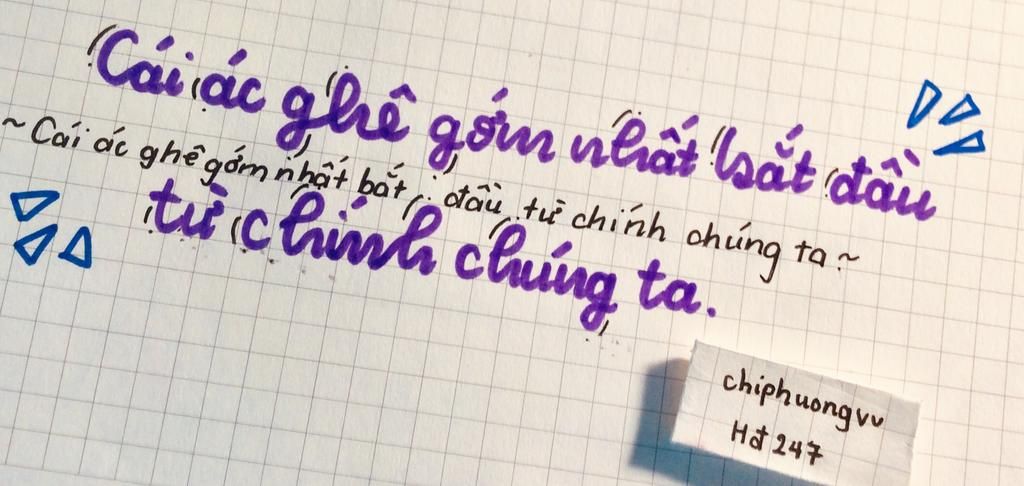 Cái ác ghê gớm nhất bắt đầu
~ Cái ác ghê gớm nhất bắt đầu từ chính chúng ta ~
từ chính chúng ta.
chiphuongvu
Hđ 247